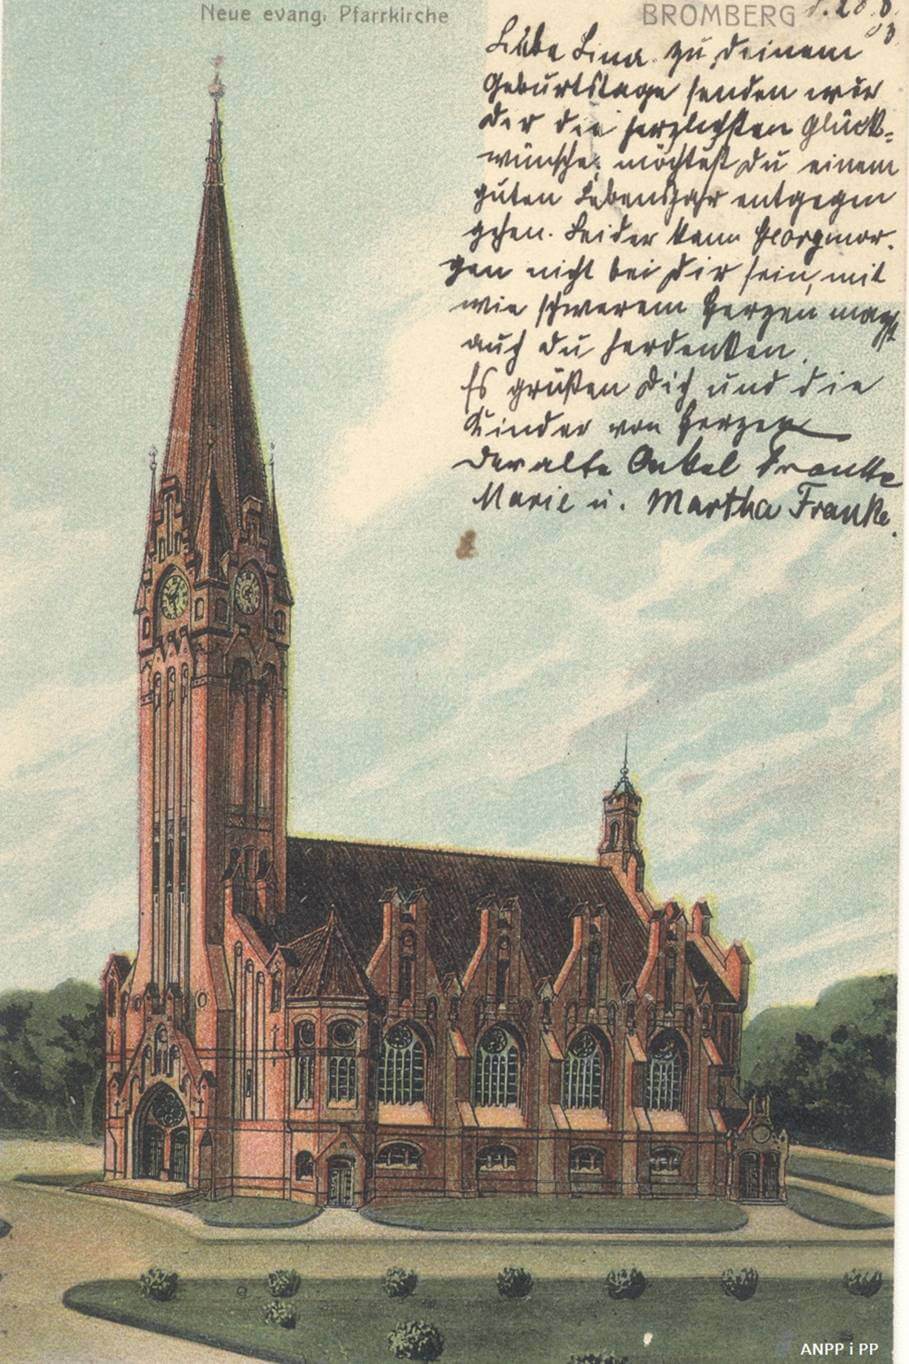 Neue evang. Pfarrkirche
BROMBERG d. 28.8.
03.
Liebe Lina. zu Deinem
Geburtstage senden wir
Dir die herzlichsten Glück-
wünsche, möchtest Du einem
guten Lebensjahr entgegen
gehen. Leider kann Georg mor-
gen nicht bei Dir sein, mit
wie schwerem Herzen magst
auch du
Es grüßen Dich und die
Kinder von Herzen
Der alte Onkel Franke
Marie u. Martha Franke.
ANPP i PP